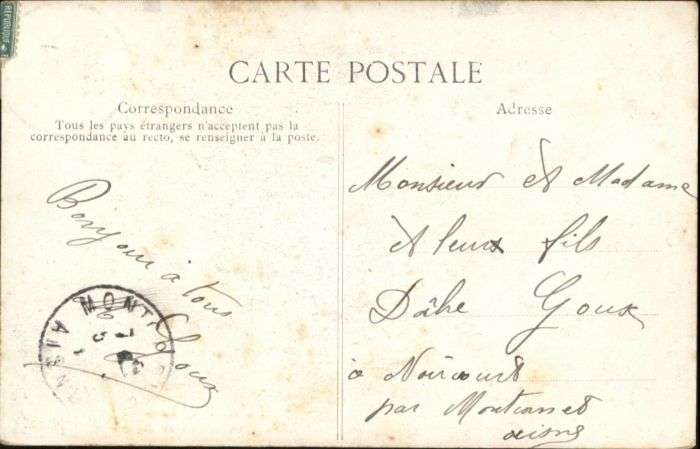 REPUBLIQUE
CARTE POSTALE
Correspondance
Tous les pays étrangers n'acceptent pas la
correspondance au recto, se renseigner à la poste.
Bonjour à tous
Goux
MONT
AISNE
Adresse
Monsieur et Madame
et leurs fils
Goux
à Noircourt
par Montcornet
aisne